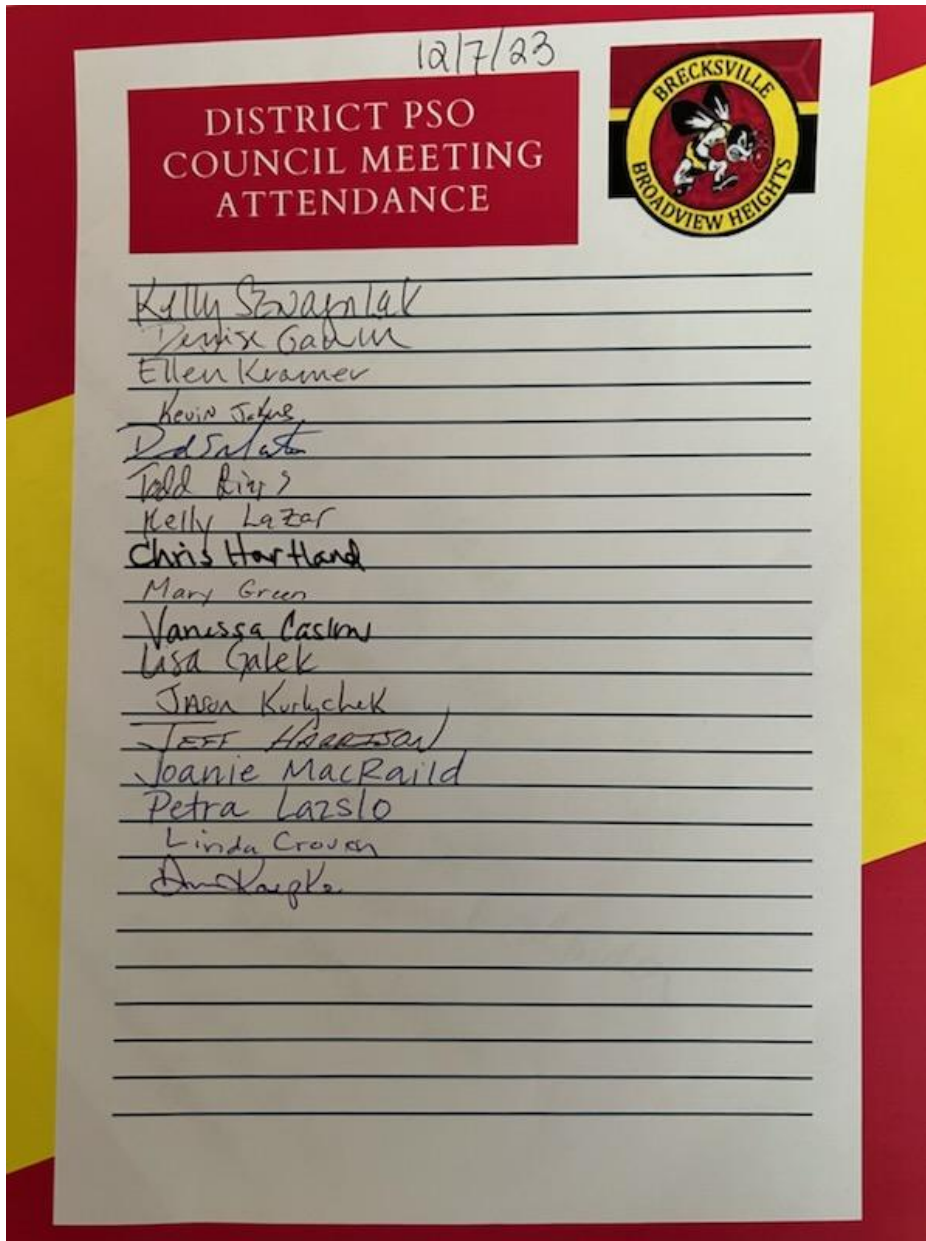 12/7/23
DISTRICT PSO
COUNCIL MEETING
ATTENDANCE
BRECKSVILLE
BROADVIEW HEIGHTS
Kelly
Denise
Ellen Kramer
Kevin
Todd
Kelly Lazar
Chris Hartland
Mary Green
Vanessa
Lisa Galek
Jason Kurlychek
JEFF HARRISON
Joanie MacRaild
Petra Lazslo
Linda